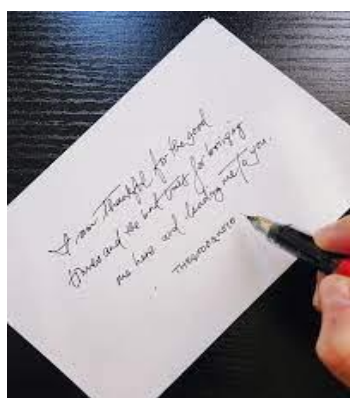 I am thankful for the good
times and the bad ones for bringing
me here and leading me to you.
THEGOODQUOTE